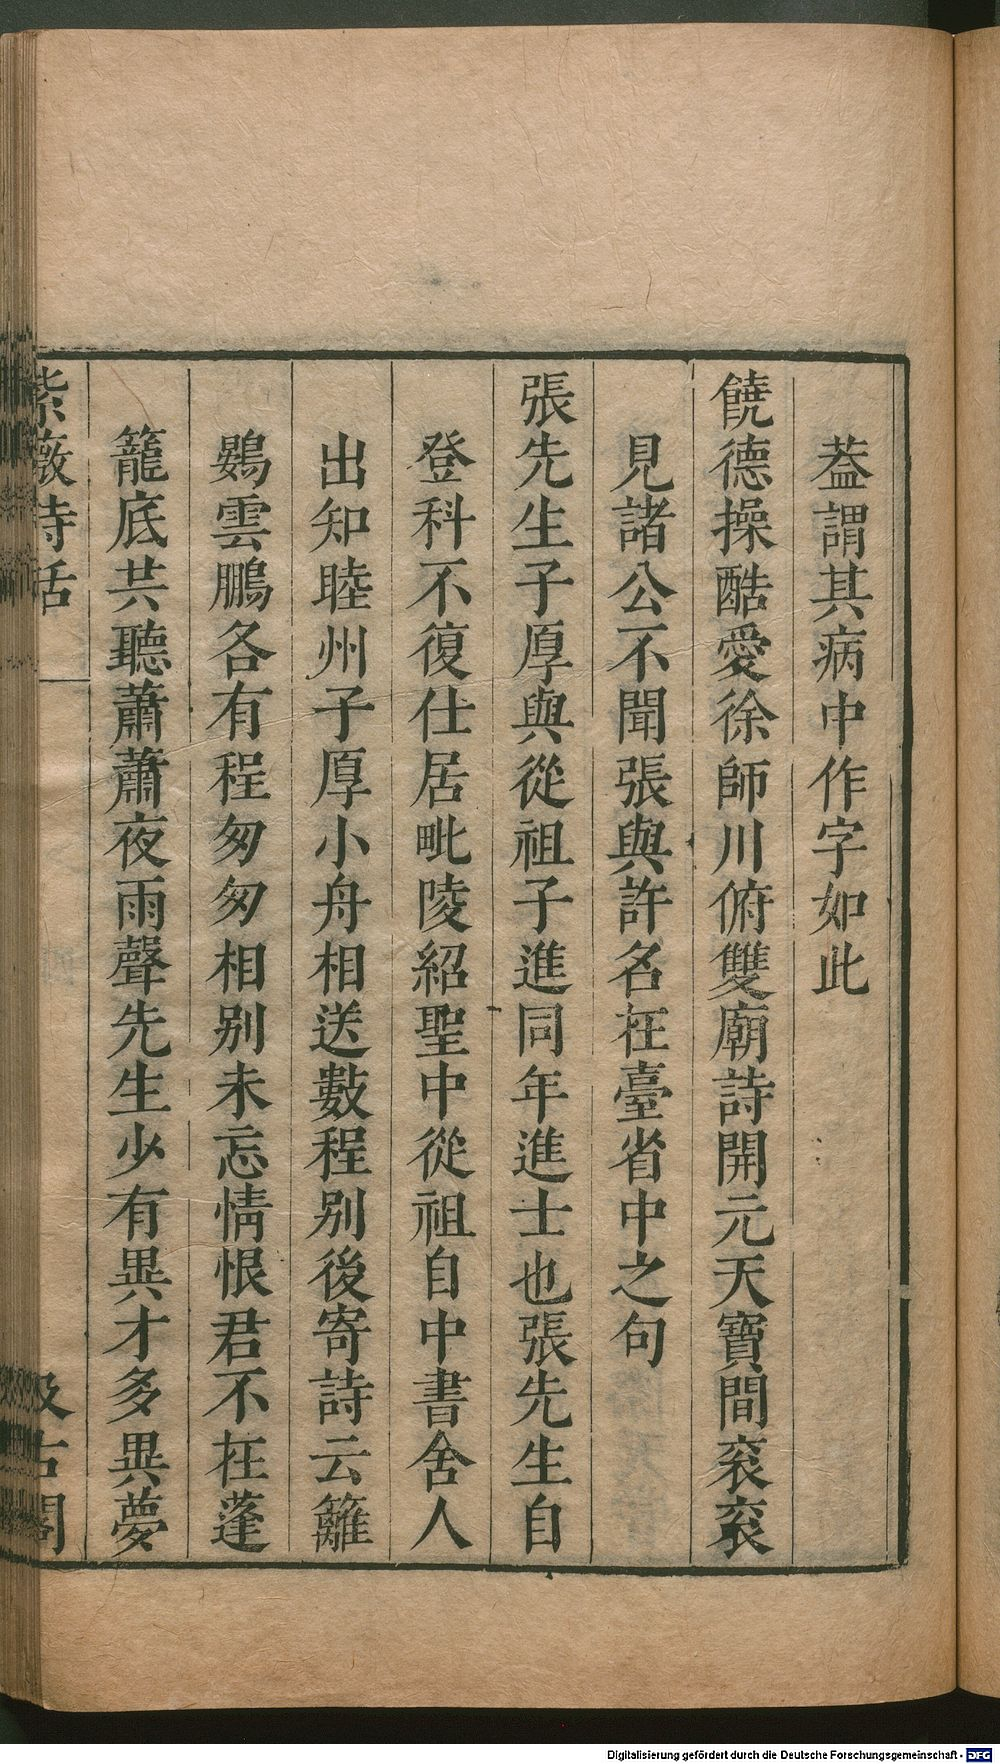 葢謂其病中作字如此
饒德操酷愛徐師川俯雙廟詩開元天寶間衮衮
見諸公不聞張與許名在臺省中之句
張先生子厚與從祖子進同年進士也張先生自
登科不復仕居毗陵紹聖中從祖自中書舍人
出知睦州子厚小舟相送數程别後寄詩云籬
鷃雲鵬各有程匆匆相别未忘情恨君不在蓬
籠底共聽蕭蕭夜雨聲先生少有異才多異夢
紫薇詩話
汲古閣
Digitalisierung gefördert durch die Deutsche Forschungsgemeinschaft - DFG